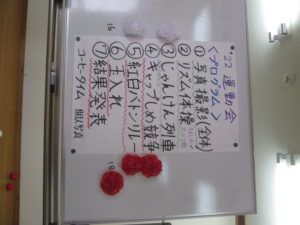 '22 運動会
<プログラム>
①写真撮影(全体)
②リズム体操
③じゃんけん列車
④キャップしめ競争
⑤紅白バトンリレー
⑥玉入れ
⑦結果発表
コーヒータイム 個人写真
16
18